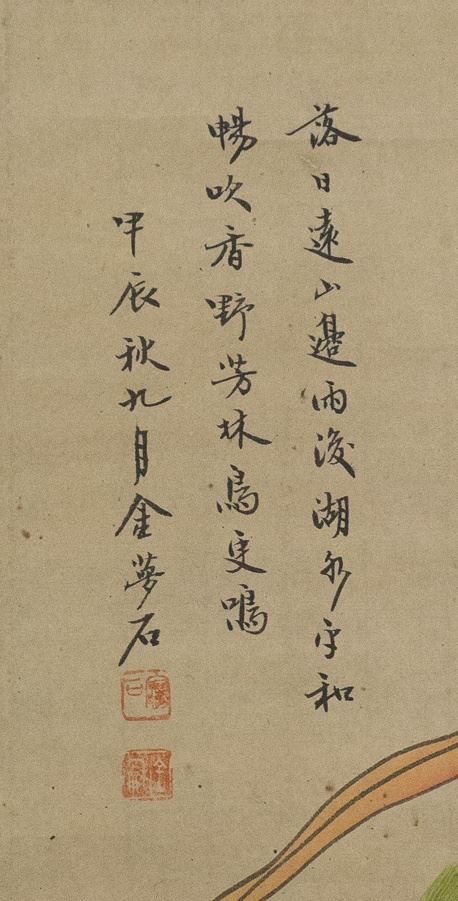 落日遠山邊雨後湖水平和
暢吹香野芳林鳥更鳴
甲辰秋九月金夢石